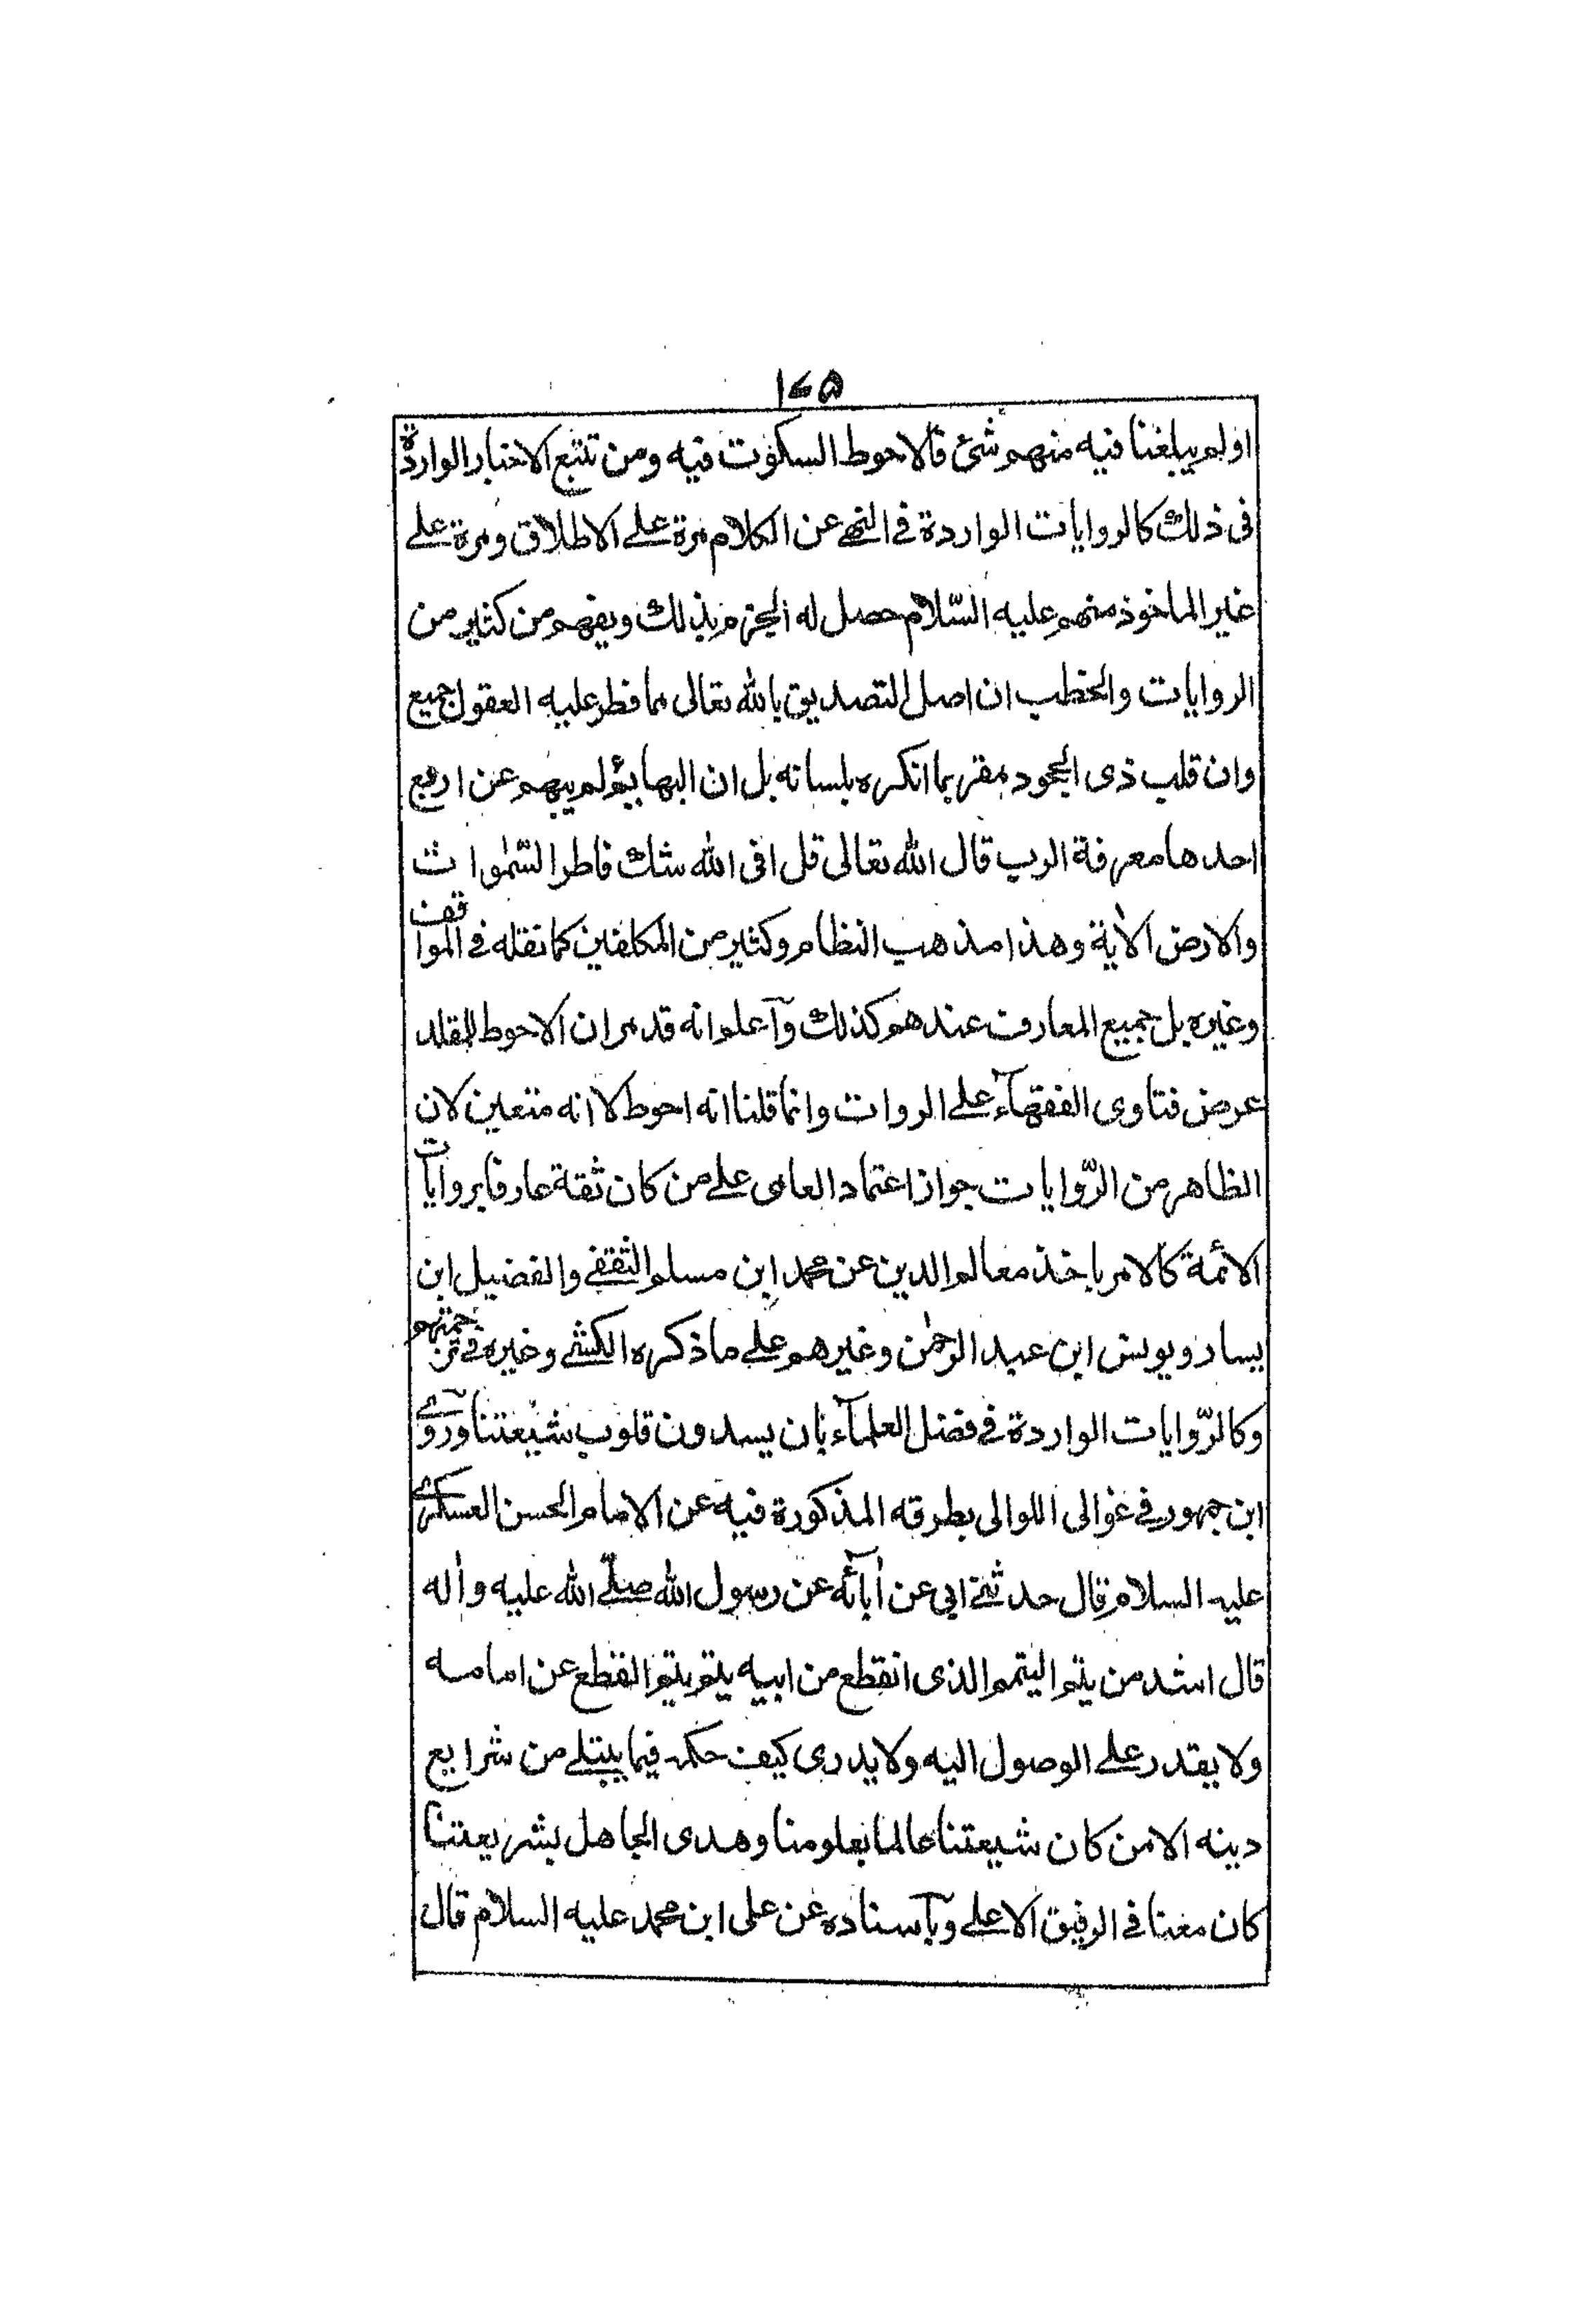 ١٧٥
اولم يبلغنا فيه منهم شئ فالاحوط السكوت فيه ومن تتبع الاخبار الواردة
فى ذلك كالروايات الواردة في النهي عن الكلام مرة على الاطلاق ومرة على
غير الماخوذ منهم عليه السّلام حصل له الجزم بذلك ويفهم من كثير من
الروايات والخطب ان اصل التصديق بالله تعالى مما فطر عليه العقول جميع
وان قلب ذى الجحود مقر بما انكره بلسانه بل ان البهايم لم يبهم عن اربع
احدها معرفة الرب قال الله تعالى قل افى الله شك فاطر السّمٰوات
والارض الاٰية وهذا مذهب النظام وكثير من المكلفين كما نقله في المواقف
وغيره بل جميع المعارف عندهم كذلك وآعلم انه قد مر ان الاحوط للمقلد
عرض فتاوى الفقهآء على الروات وانما قلنا انه احوط لا انه متعين لان
الظاهر من الرّوايات جواز اعتماد العامى على من كان ثقة عارفا بروايات
الائمة كالامر باخذ معالم الدين عن محمد ابن مسلم الثقفي والفضيل ابن
يسار ويونس ابن عبد الرحمٰن وغيرهم على ما ذكره الكشي وغيره في ترجمتهم
وكالرّوايات الواردة في فضل العلمآء بان يسدون قلوب شيعتنا وروى
ابن جمهور في غوالى اللوالى بطرقه المذكورة فيه عن الامام الحسن العسكري
عليه السلام قال حدثني ابي عن اٰبآئه عن رسول الله صلّى الله عليه واٰله
قال اشد من يتم اليتيم الذى انقطع من ابيه يتم يتيم انقطع عن امامه
ولا يقدر على الوصول اليه ولا يدرى كيف حكمه فيما يبتلى من شرايع
دينه الامن كان شيعتنا عالما بعلومنا وهدى الجاهل بشريعتنا
كان معنا في الرفيق الاعلى وبآسناده عن على ابن محمد عليه السلام قال